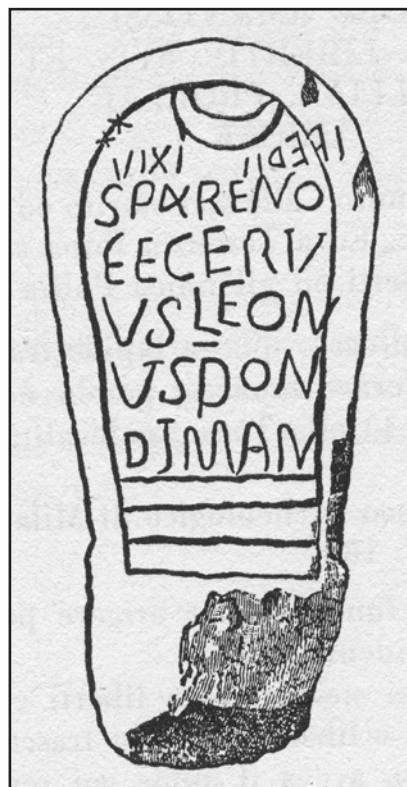 VIXI
SPARENO
EECERTV
VSLEON
VSDON
DIMAN